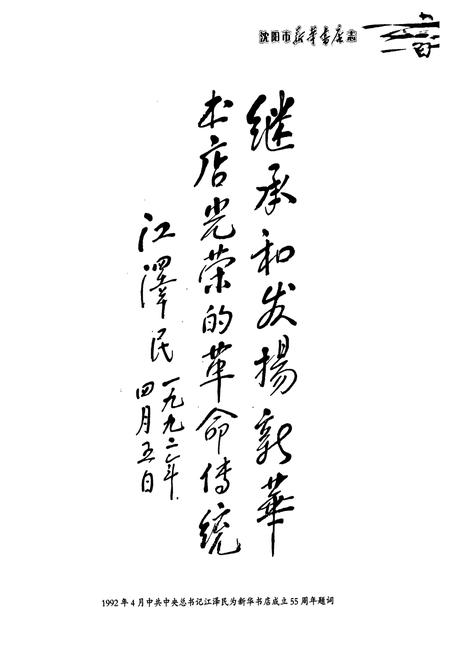 沈阳市新华书店志
继承和发揚新華
书店光荣的革命传统
江澤民
一九九二年
四月五日
1992 年 4 月中共中央总书记江泽民为新华书店成立 55 周年题词